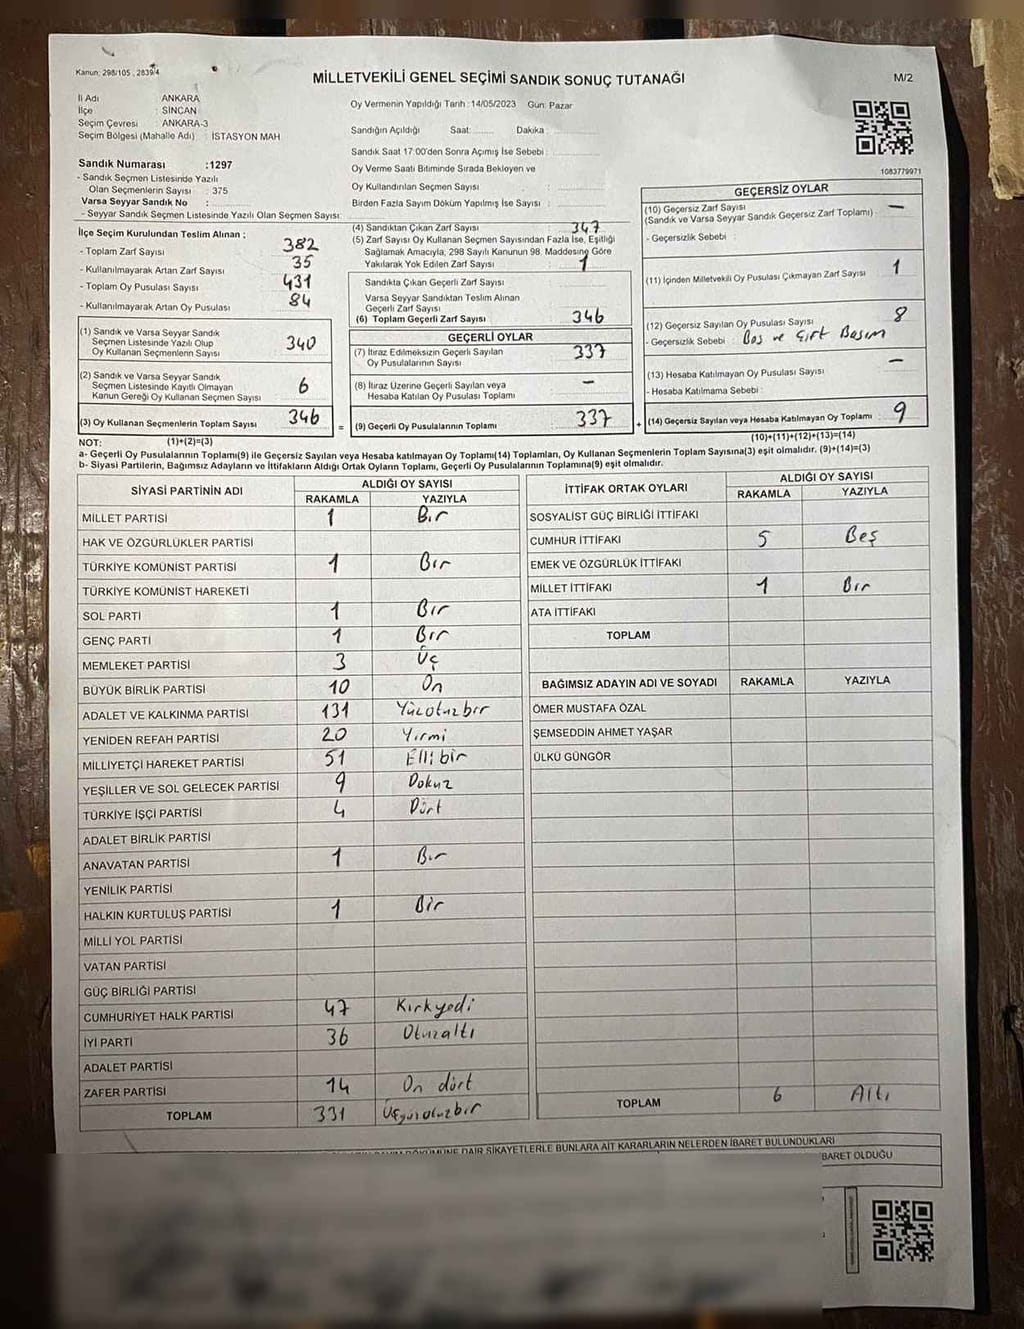 Kanun; 298/105 , 2839/4
MİLLETVEKİLİ GENEL SEÇİMİ SANDIK SONUÇ TUTANAĞI
M/2
İl Adı ANKARA
İlçe : SİNCAN
Seçim Çevresi : ANKARA-3
Seçim Bölgesi (Mahalle Adı) : İSTASYON MAH
Sandık Numarası :1297
- Sandık Seçmen Listesinde Yazılı
Olan Seçmenlerin Sayısı : 375
Varsa Seyyar Sandık No :
- Seyyar Sandık Seçmen Listesinde Yazılı Olan Seçmen Sayısı:
Oy Vermenin Yapıldığı Tarih :14/05/2023 Gün: Pazar
Sandığın Açıldığı Saat:........ Dakika :
Sandık Saat 17:00'den Sonra Açımış İse Sebebi :
Oy Verme Saati Bitiminde Sırada Bekleyen ve
Oy Kullandırılan Seçmen Sayısı :
Birden Fazla Sayım Döküm Yapılmış İse Sayısı :
1083779971
İlçe Seçim Kurulundan Teslim Alınan ;
- Toplam Zarf Sayısı 382
- Kullanılmayarak Artan Zarf Sayısı 35
- Toplam Oy Pusulası Sayısı 431
- Kullanılmayarak Artan Oy Pusulası 84
(1) Sandık ve Varsa Seyyar Sandık
Seçmen Listesinde Yazılı Olup
Oy Kullanan Seçmenlerin Sayısı 340
(2) Sandık ve Varsa Seyyar Sandık
Seçmen Listesinde Kayıtlı Olmayan
Kanun Gereği Oy Kullanan Seçmen Sayısı 6
(3) Oy Kullanan Seçmenlerin Toplam Sayısı 346 =
(4) Sandıktan Çıkan Zarf Sayısı 347
(5) Zarf Sayısı Oy Kullanan Seçmen Sayısından Fazla İse, Eşitliği
Sağlamak Amacıyla, 298 Sayılı Kanunun 98. Maddesine Göre
Yakılarak Yok Edilen Zarf Sayısı 1
Sandıkta Çıkan Geçerli Zarf Sayısı
Varsa Seyyar Sandıktan Teslim Alınan
Geçerli Zarf Sayısı
(6) Toplam Geçerli Zarf Sayısı 346
GEÇERLİ OYLAR
(7) İtiraz Edilmeksizin Geçerli Sayılan
Oy Pusulalarının Sayısı 337
(8) İtiraz Üzerine Geçerli Sayılan veya
Hesaba Katılan Oy Pusulası Toplamı –
(9) Geçerli Oy Pusulalarının Toplamı 337 +
GEÇERSİZ OYLAR
(10) Geçersiz Zarf Sayısı –
(Sandık ve Varsa Seyyar Sandık Geçersiz Zarf Toplamı)
- Geçersizlik Sebebi :
(11) İçinden Milletvekili Oy Pusulası Çıkmayan Zarf Sayısı 1
(12) Geçersiz Sayılan Oy Pusulası Sayısı 8
- Geçersizlik Sebebi : Boş ve Çift Basım
(13) Hesaba Katılmayan Oy Pusulası Sayısı –
- Hesaba Katılmama Sebebi :
(14) Geçersiz Sayılan veya Hesaba Katılmayan Oy Toplamı 9
NOT: (1)+(2)=(3) (10)+(11)+(12)+(13)=(14)
a- Geçerli Oy Pusulalarının Toplamı(9) ile Geçersiz Sayılan veya Hesaba katılmayan Oy Toplamı(14) Toplamları, Oy Kullanan Seçmenlerin Toplam Sayısına(3) eşit olmalıdır. (9)+(14)=(3)
b- Siyasi Partilerin, Bağımsız Adayların ve İttifakların Aldığı Ortak Oyların Toplamı, Geçerli Oy Pusulalarının Toplamına(9) eşit olmalıdır.
SİYASİ PARTİNİN ADI ALDIĞI OY SAYISI
RAKAMLA YAZIYLA
MİLLET PARTİSİ 1 Bir
HAK VE ÖZGÜRLÜKLER PARTİSİ
TÜRKİYE KOMÜNİST PARTİSİ 1 Bir
TÜRKİYE KOMÜNİST HAREKETİ
SOL PARTİ 1 Bir
GENÇ PARTİ 1 Bir
MEMLEKET PARTİSİ 3 Üç
BÜYÜK BİRLİK PARTİSİ 10 On
ADALET VE KALKINMA PARTİSİ 131 Yüzotuzbir
YENİDEN REFAH PARTİSİ 20 Yirmi
MİLLİYETÇİ HAREKET PARTİSİ 51 Elli bir
YEŞİLLER VE SOL GELECEK PARTİSİ 9 Dokuz
TÜRKİYE İŞÇİ PARTİSİ 4 Dört
ADALET BİRLİK PARTİSİ
ANAVATAN PARTİSİ 1 Bir
YENİLİK PARTİSİ
HALKIN KURTULUŞ PARTİSİ 1 Bir
MİLLİ YOL PARTİSİ
VATAN PARTİSİ
GÜÇ BİRLİĞİ PARTİSİ
CUMHURİYET HALK PARTİSİ 47 Kırkyedi
İYİ PARTİ 36 Otuzaltı
ADALET PARTİSİ
ZAFER PARTİSİ 14 On dört
TOPLAM 331 Üçyüzotuzbir
İTTİFAK ORTAK OYLARI ALDIĞI OY SAYISI
RAKAMLA YAZIYLA
SOSYALİST GÜÇ BİRLİĞİ İTTİFAKI
CUMHUR İTTİFAKI 5 Beş
EMEK VE ÖZGÜRLÜK İTTİFAKI
MİLLET İTTİFAKI 1 Bir
ATA İTTİFAKI
TOPLAM
BAĞIMSIZ ADAYIN ADI VE SOYADI RAKAMLA YAZIYLA
ÖMER MUSTAFA ÖZAL
ŞEMSEDDİN AHMET YAŞAR
ÜLKÜ GÜNGÖR
TOPLAM 6 Altı
DÖKÜMÜNE DAİR ŞİKAYETLERLE BUNLARA AİT KARARLARIN NELERDEN İBARET BULUNDUKLARI
İBARET OLDUĞU